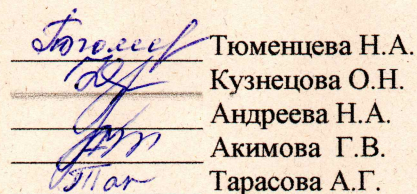 Тюменцева Н.А.
Кузнецова О.Н.
Андреева Н.А.
Акимова Г.В.
Тарасова А.Г.